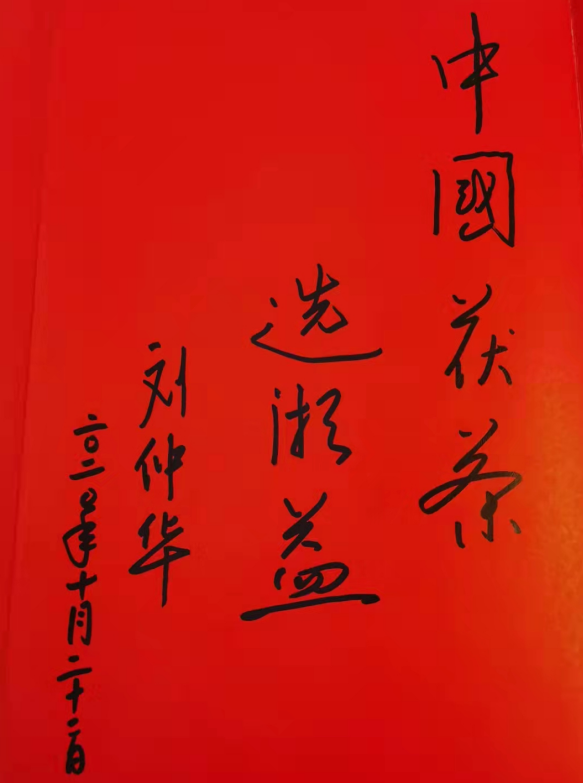 中國茯茶
选湘益
刘仲华
二〇二〇年十月二十二日